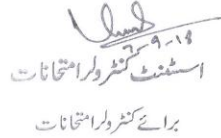 7-9-18
اسسٹنٹ کنٹرولر امتحانات
برائے کنٹرولر امتحانات